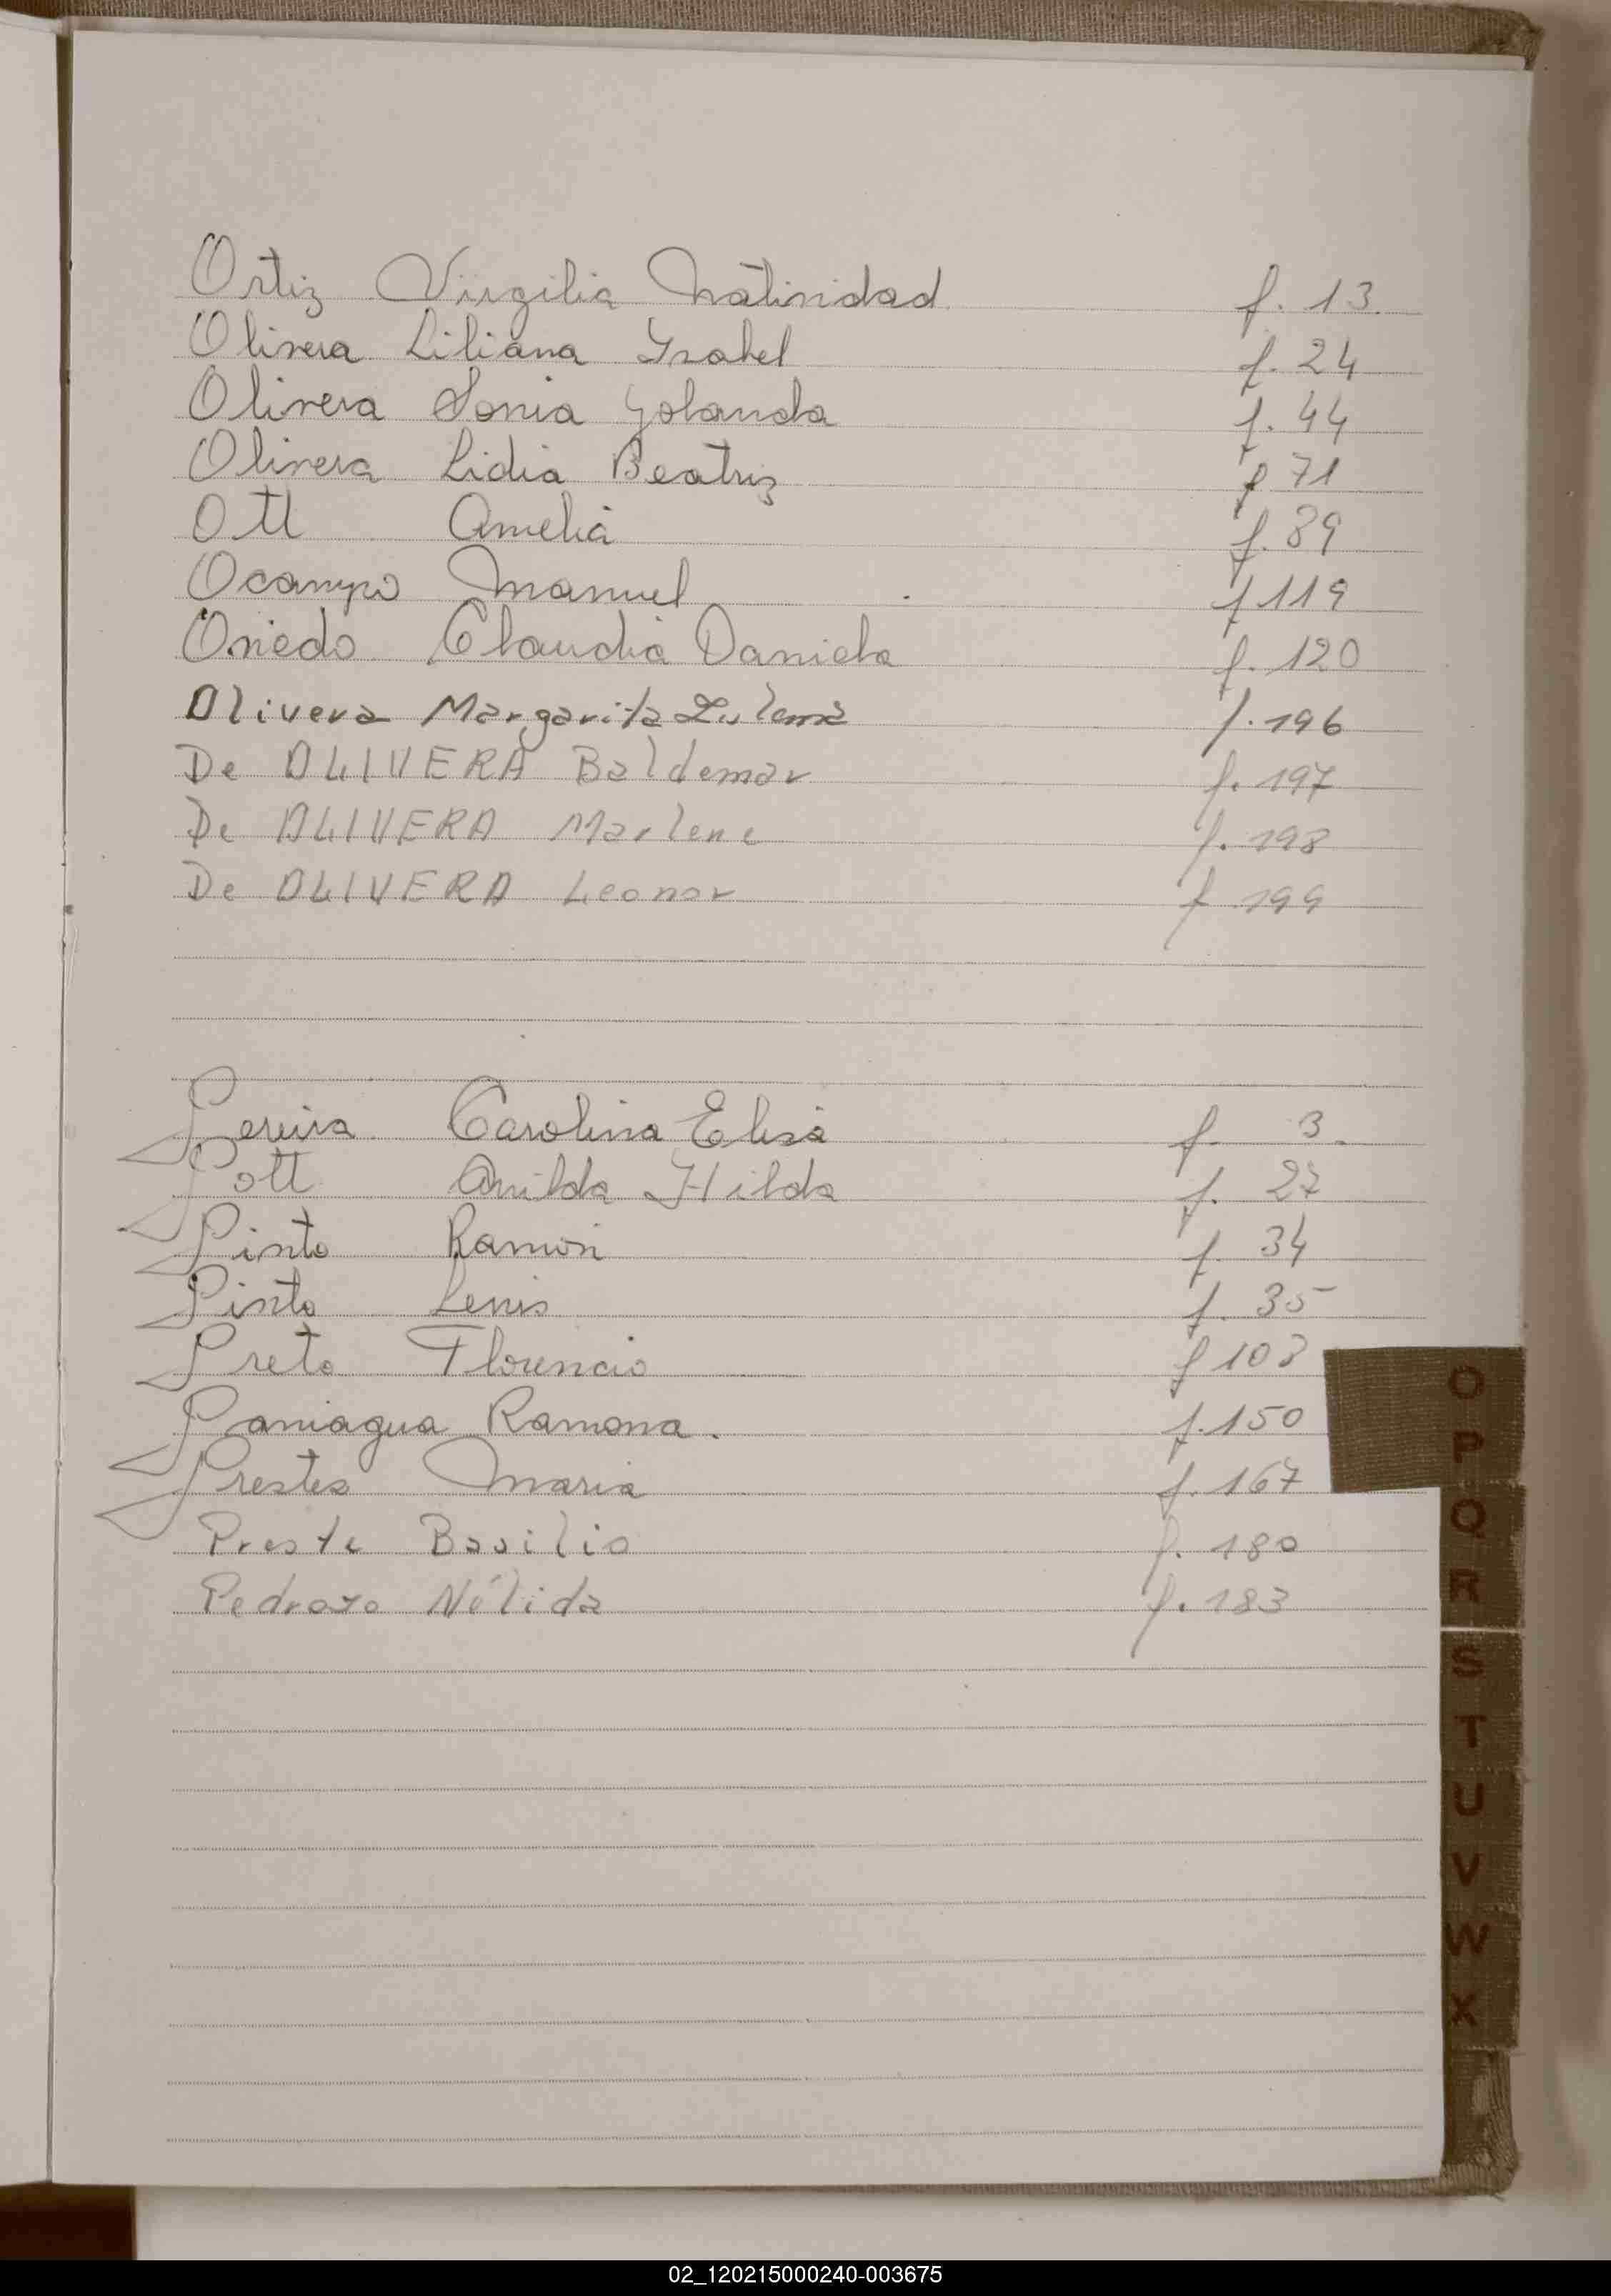 Ortiz Virgilia Natividad f. 13.
Olivera Liliana Ysabel f. 24
Olivera Sonia Yolanda f. 44
Olivera Lidia Beatriz f 71
Ott Amelia f. 89
Ocampo Manuel f 119
Oviedo Claudia Daniela f. 120
Olivera Margarita Zulema f. 196
De OLIVERA Baldemar f. 197
De OLIVERA Marlene f. 198
De OLIVERA Leonor f. 199
Pereira Carolina Elisa f. 3.
Pott Anilda Hilda f. 27
Pinto Ramón f. 34
Pinto Lenis f. 35
Preto Florencio f 108
Paniagua Ramona. f. 150
Prestes Maria f. 167
Preste Basilio f. 180
Pedrozo Nélida f. 183
O
P
Q
R
S
T
U
V
W
X
02_120215000240-003675